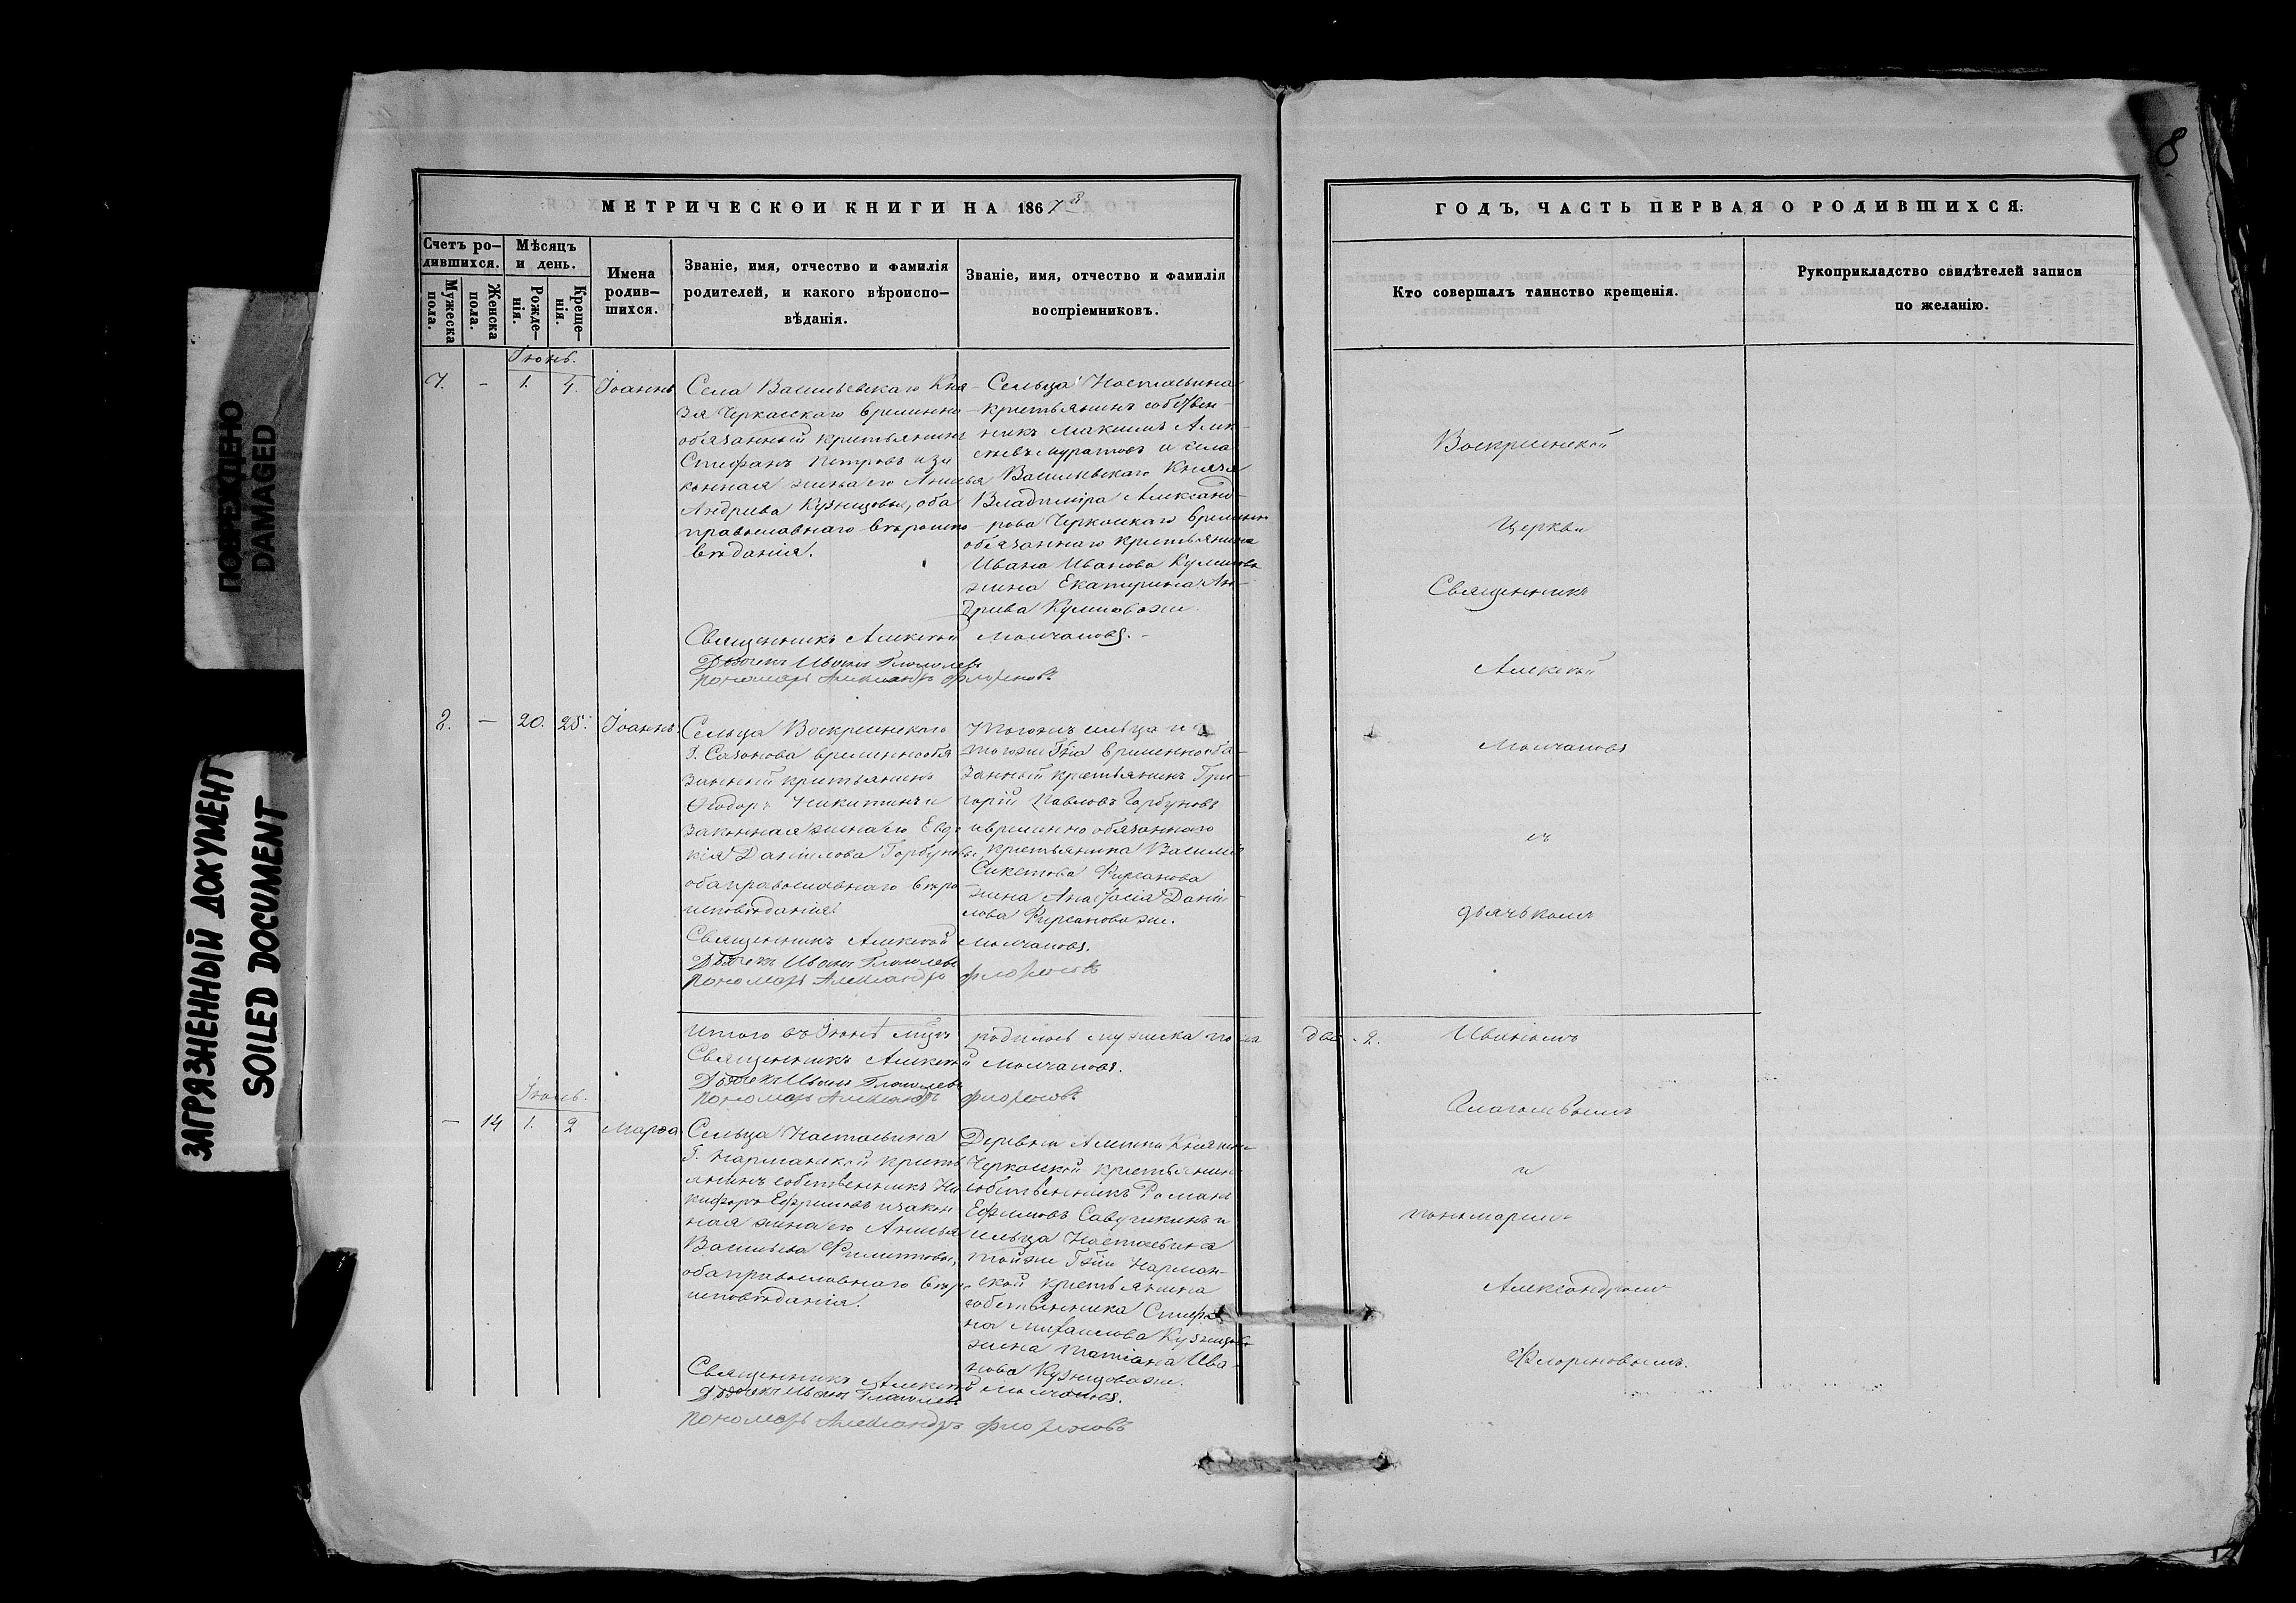 МЕТРИЧЕСКОЙ КНИГИ НА 1868
Счетъ ро-
дившихся.
Мѣсяцъ
и день.
Мужеска
пола.
Женска
пола.
Рожде-
нія.
Креще-
нія.
Имена
родив-
шихся.
Званіе, имя, отчество и фамилія
родителей, и какого вѣроиспо-
вѣданія.
Званіе, имя, отчество и фамилія
воспріемниковъ.
Іюнь.
7. - 1. 4. Іоаннъ
Села Васильевскаго Кня-
зя Черкасскаго временно
обязанный крестьянинъ
Стефанъ Петровъ и за
конная жена его Анисья
Андреева Кузнецовы, оба
православнаго вѣроиспо-
вѣданія.
Сельца Настасьина
крестьянинъ собствен-
никъ Максимъ Алек-
сѣевъ Муратовъ и села
Васильевскаго Князя
Владиміра Александ-
рова Черкасскаго временно
обязаннаго крестьянина
Ивана Иванова
жена Екатерина Ан-
дреева
Священникъ Алексѣй Молчановъ.
Дьячекъ Иванъ Глаголевъ
Пономарь Александръ Флореновъ
8. - 20. 25. Іоаннъ.
Сельца Воскресенскаго
Г. Сазонова временнообя
занный крестьянинъ
Ѳеодоръ Никитинъ и
законная жена его Евдо
кія Даніилова Горбуновы,
оба православнаго вѣро
исповѣданія.
Тогоже сельца и
тогоже Гна временнообя-
занный крестьянинъ Гри-
горій Павловъ Горбуновъ
и временно обязаннаго
крестьянина Василія
Фирсанова
жена Анастасія Даніи-
лова Фирсанова же.
Священникъ Алексѣй Молчановъ.
Дьячекъ Иванъ Глаголевъ
Пономарь Александръ Флореновъ
Итого въ Іюнѣ мцѣ родилось мужеска пола два - 2.
Священникъ Алексѣй Молчановъ.
Дьячекъ Иванъ Глаголевъ
Пономарь Александръ Флореновъ
Іюль.
- 14 1. 2 Марѳа
Сельца Настасьина
Г. Нарманской кресть
янинъ собственникъ Ни
кифоръ Ефремовъ и закон-
ная жена его Анисья
Васильева Филиповы,
оба православнаго вѣро-
исповѣданія.
Деревни Княгини
Черкасской крестьянинъ
собственникъ Романъ
Ефимовъ Савушкинъ и
сельца Настасьина
тойже Гжи Нарман-
ской крестьянина
собственника Стефа
на Михаилова Кузнецова
жена Татіана Ива-
нова Кузнецова же.
Священникъ Алексѣй Молчановъ.
Дьячекъ Иванъ Глаголевъ
Пономарь Александръ Флореновъ
8.
ГОДЪ, ЧАСТЬ ПЕРВАЯ О РОДИВШИХСЯ.
Кто совершалъ таинство крещенія.
Рукоприкладство свидѣтелей записи
по желанію.
Воскресенской
Церкви
Священникъ
Алексѣй
Молчановъ
съ
дьячькомъ
Иваномъ
Глаголевымъ
и
пономаремъ
Александромъ
Флореновымъ.
ПОВРЕЖДЕНО
DAMAGED
ЗАГРЯЗНЕННЫЙ ДОКУМЕНТ
SOILED DOCUMENT